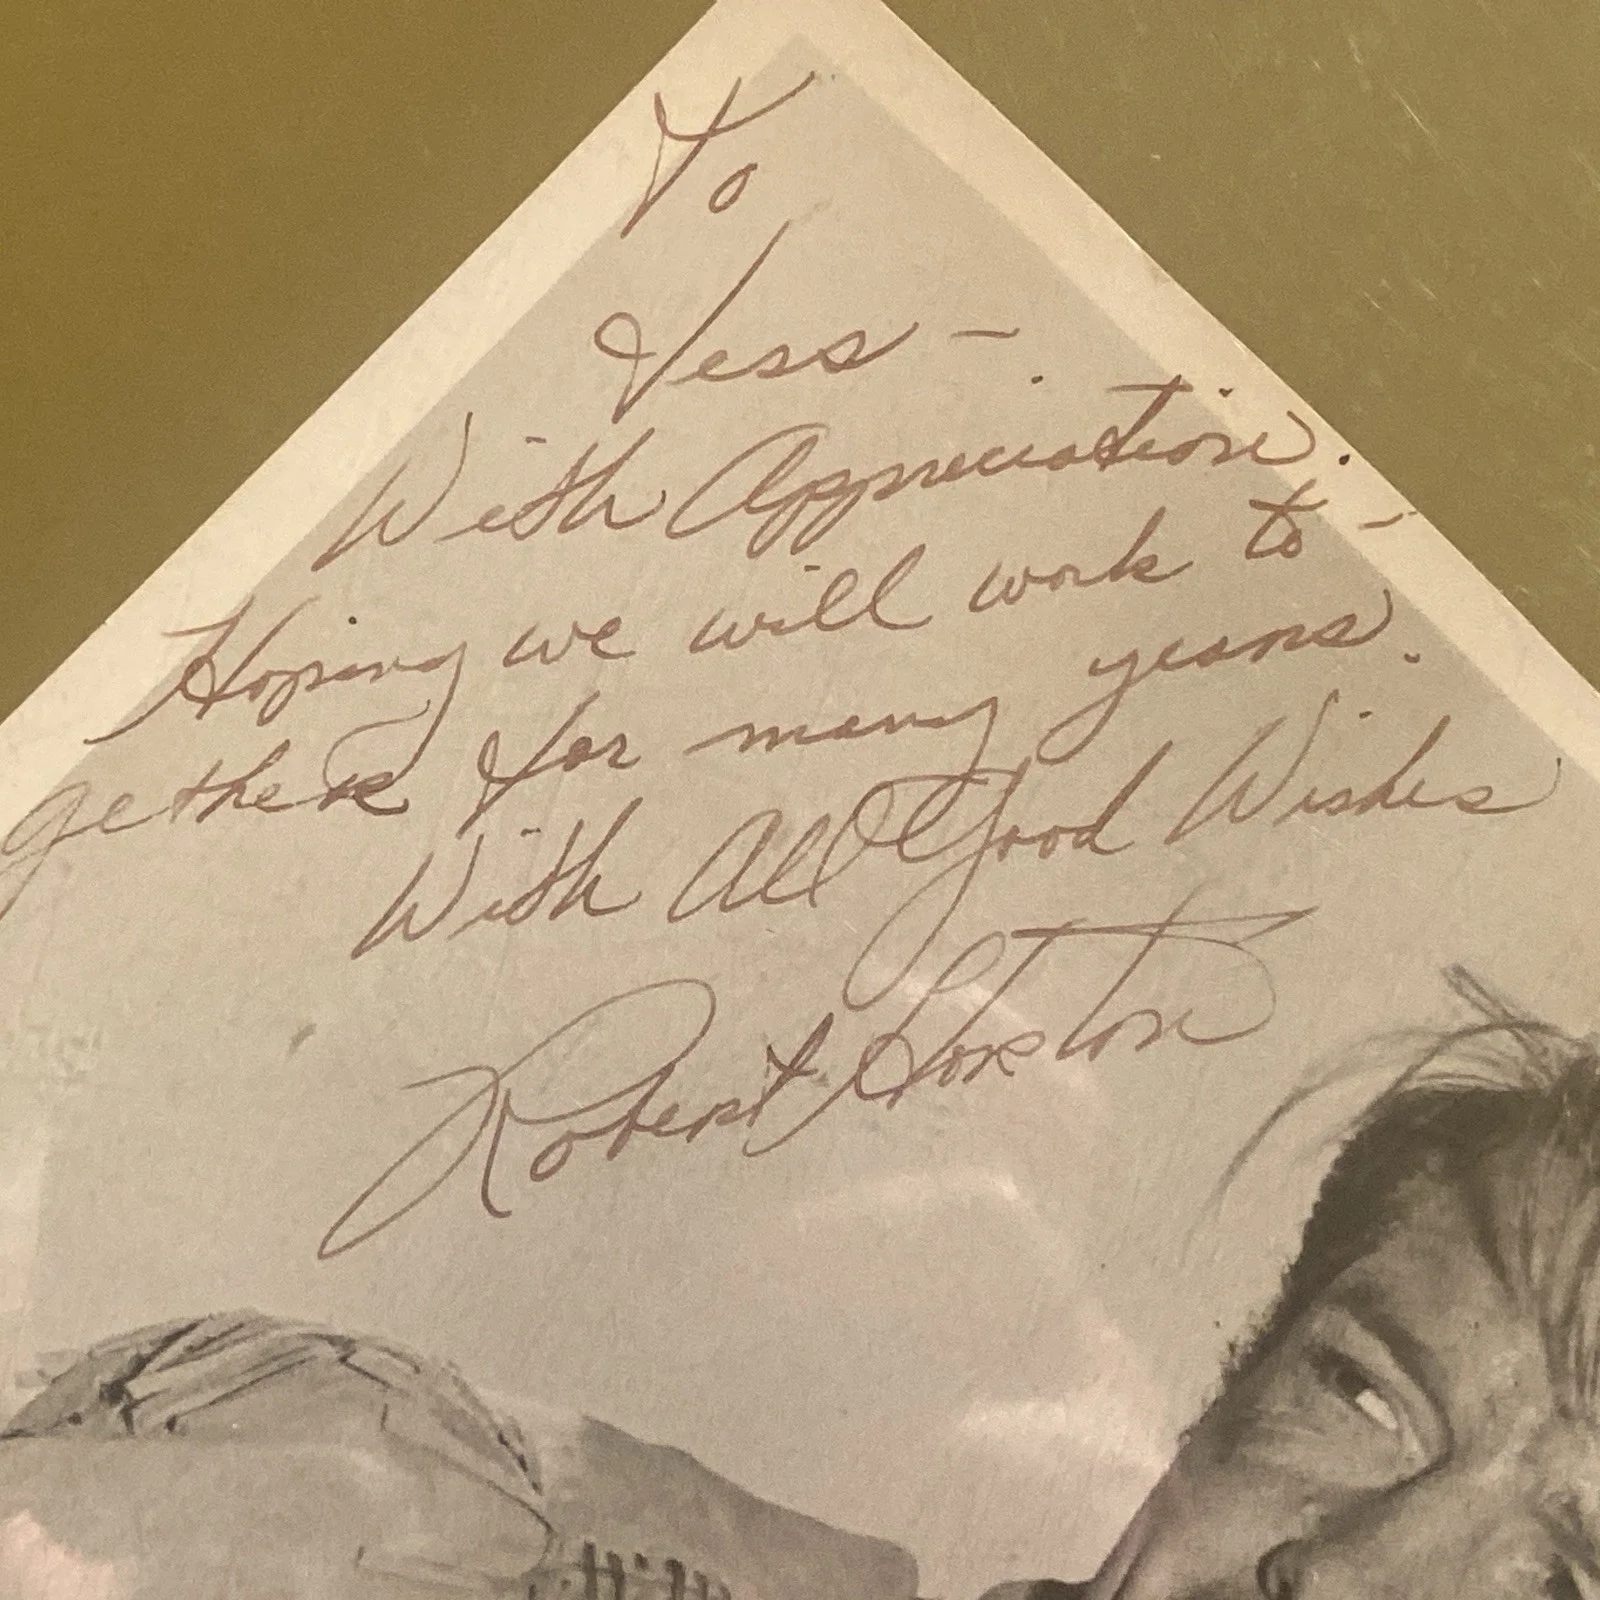 To
Jess –
With Appreciation.
Hoping we will work to-
gether for many years.
With All Good Wishes
Robert Horton